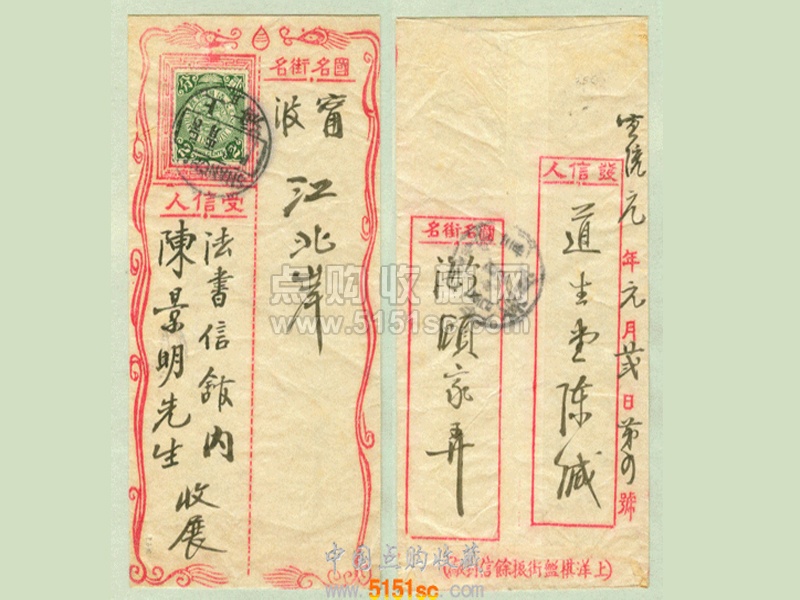 國名街名
甯波
江北岸
受信人
法書信館內
陳景明先生 收展
宣統元年元月弍日第 號
發信人
道生堂陳緘
國名街名
顧家弄
(上洋棋盤街振餘信
点购收藏网
www.5151sc.com
中国点购收藏
www.5151sc.com